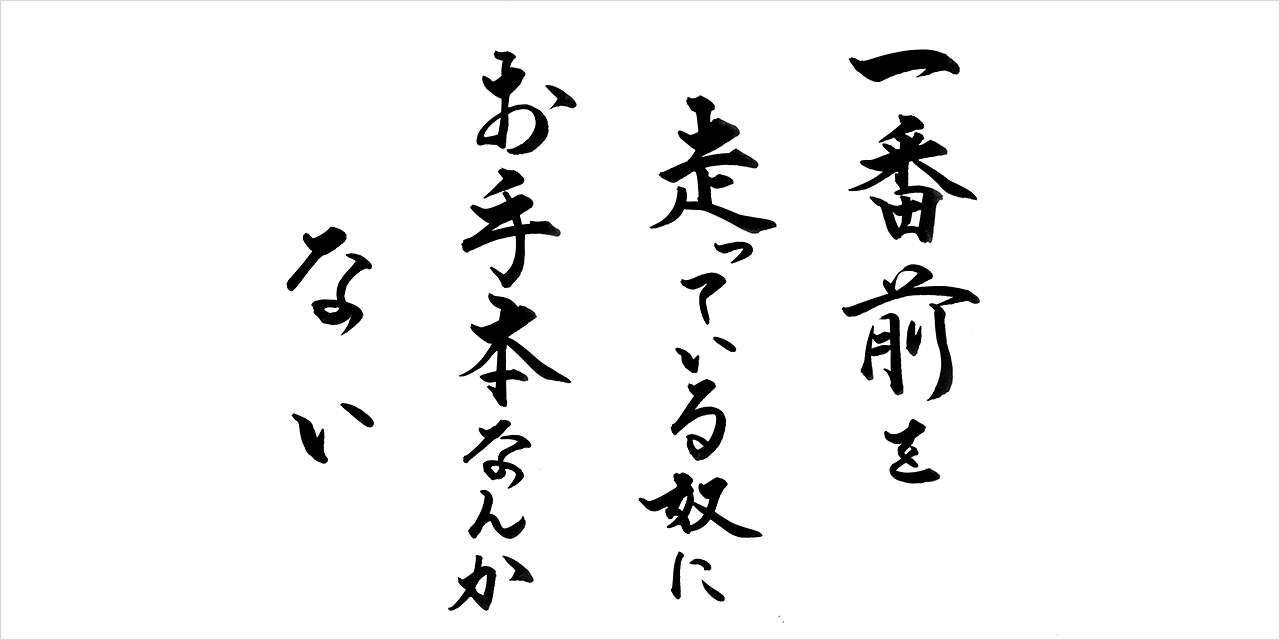 一番前を
走っている奴に
お手本なんか
ない